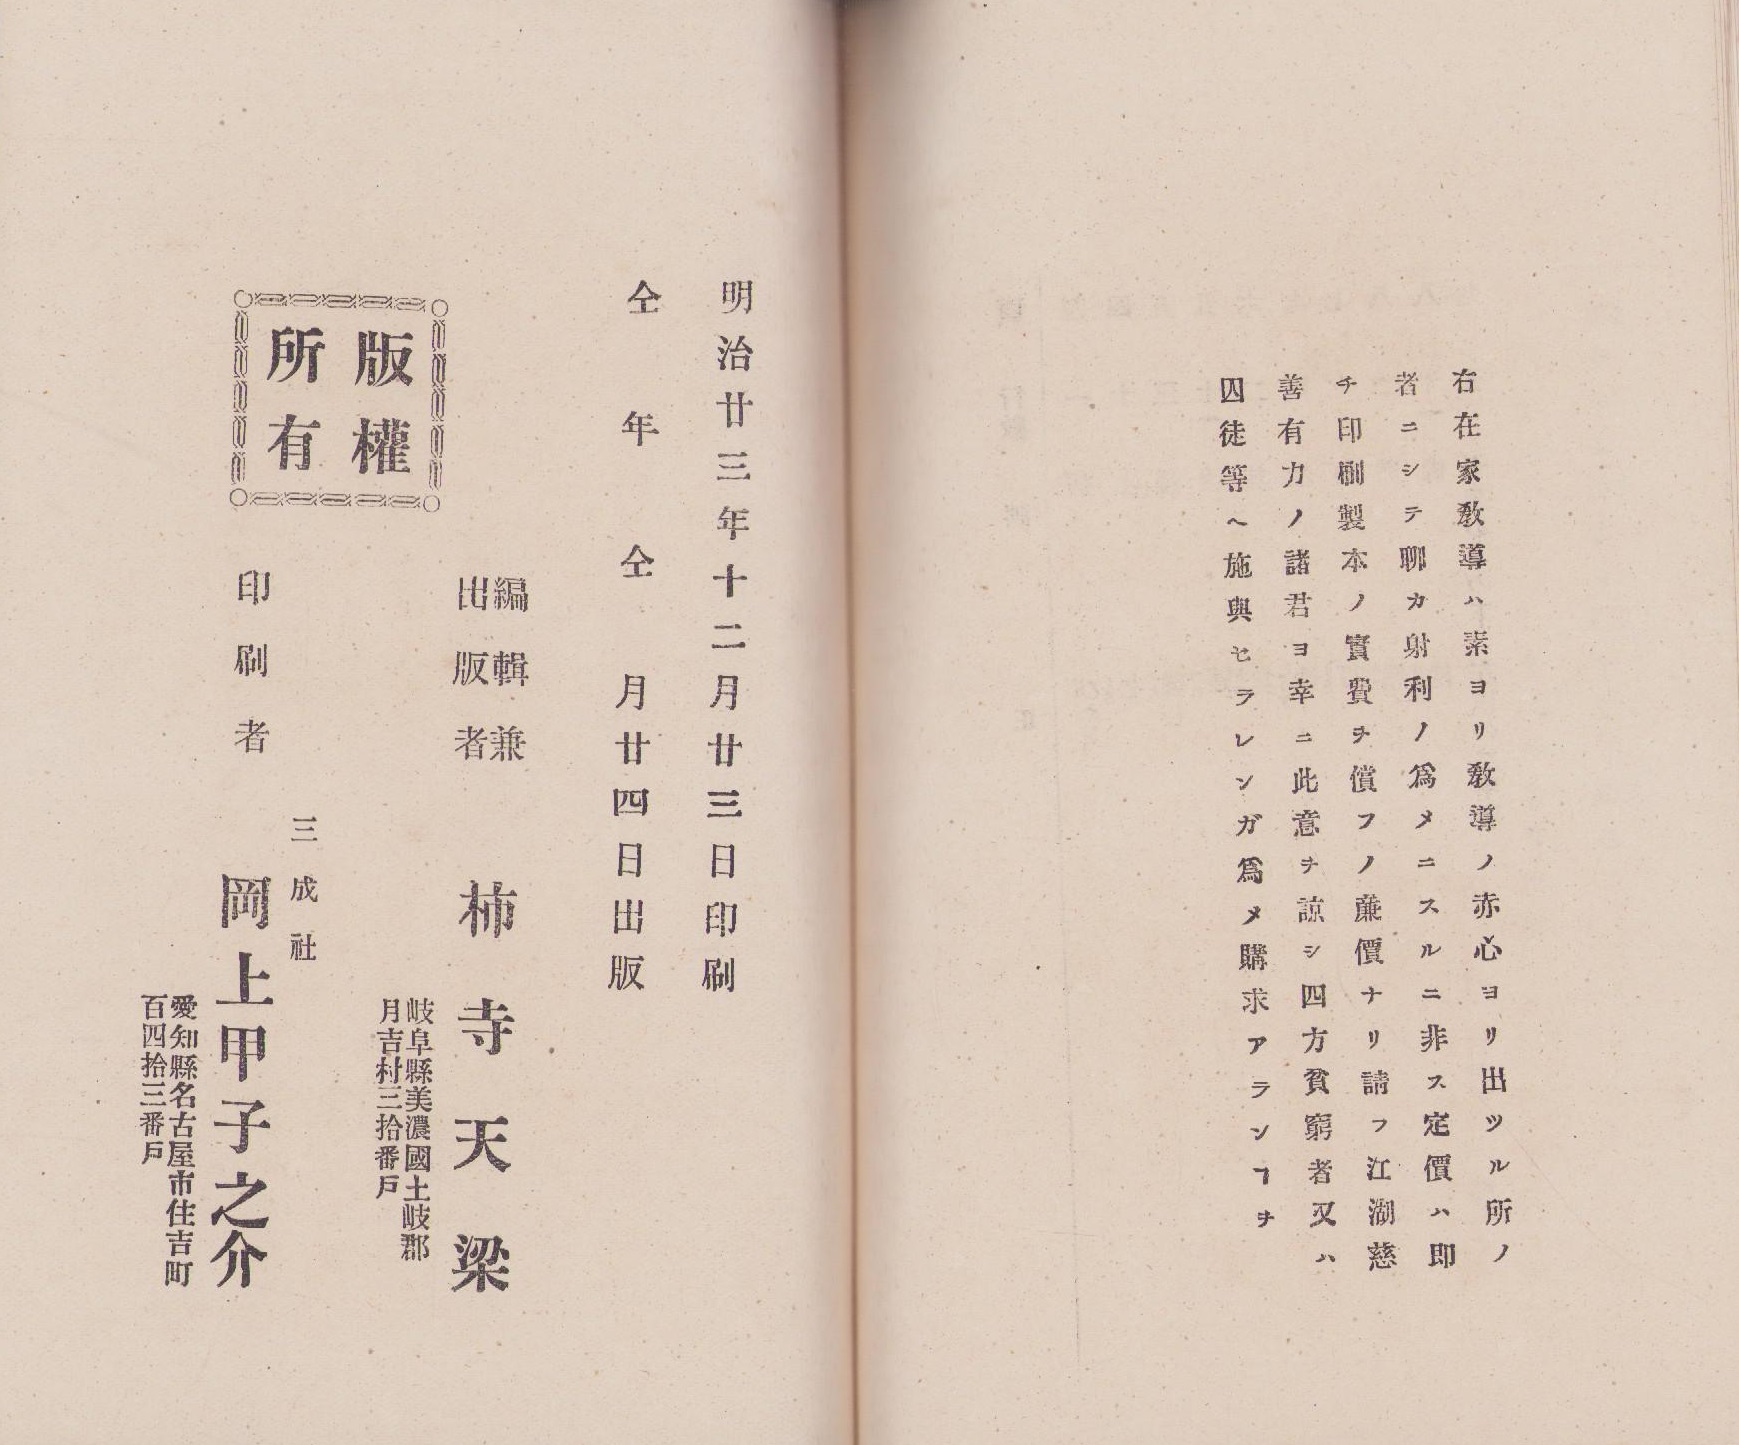 右在家敎導ハ素ヨリ敎導ノ赤心ヨリ出ツル所ノ
者ニシテ聊カ射利ノ爲メニスルニ非ス定價ハ即
チ印刷製本ノ實費ヲ償フノ廉價ナリ請フ江湖慈
善有力ノ諸君ヨ幸ニ此意ヲ諒シ四方貧窮者又ハ
囚徒等ヘ施與セラレンガ爲メ購求アランヿヲ
明治廿三年十二月廿三日印刷
仝年仝月廿四日出版
編輯兼
出版者
柿寺天梁
岐阜縣美濃國土岐郡
月吉村三拾番戶
版權
所有
三成社
印刷者
岡上甲子之介
愛知縣名古屋市住吉町
百四拾三番戶